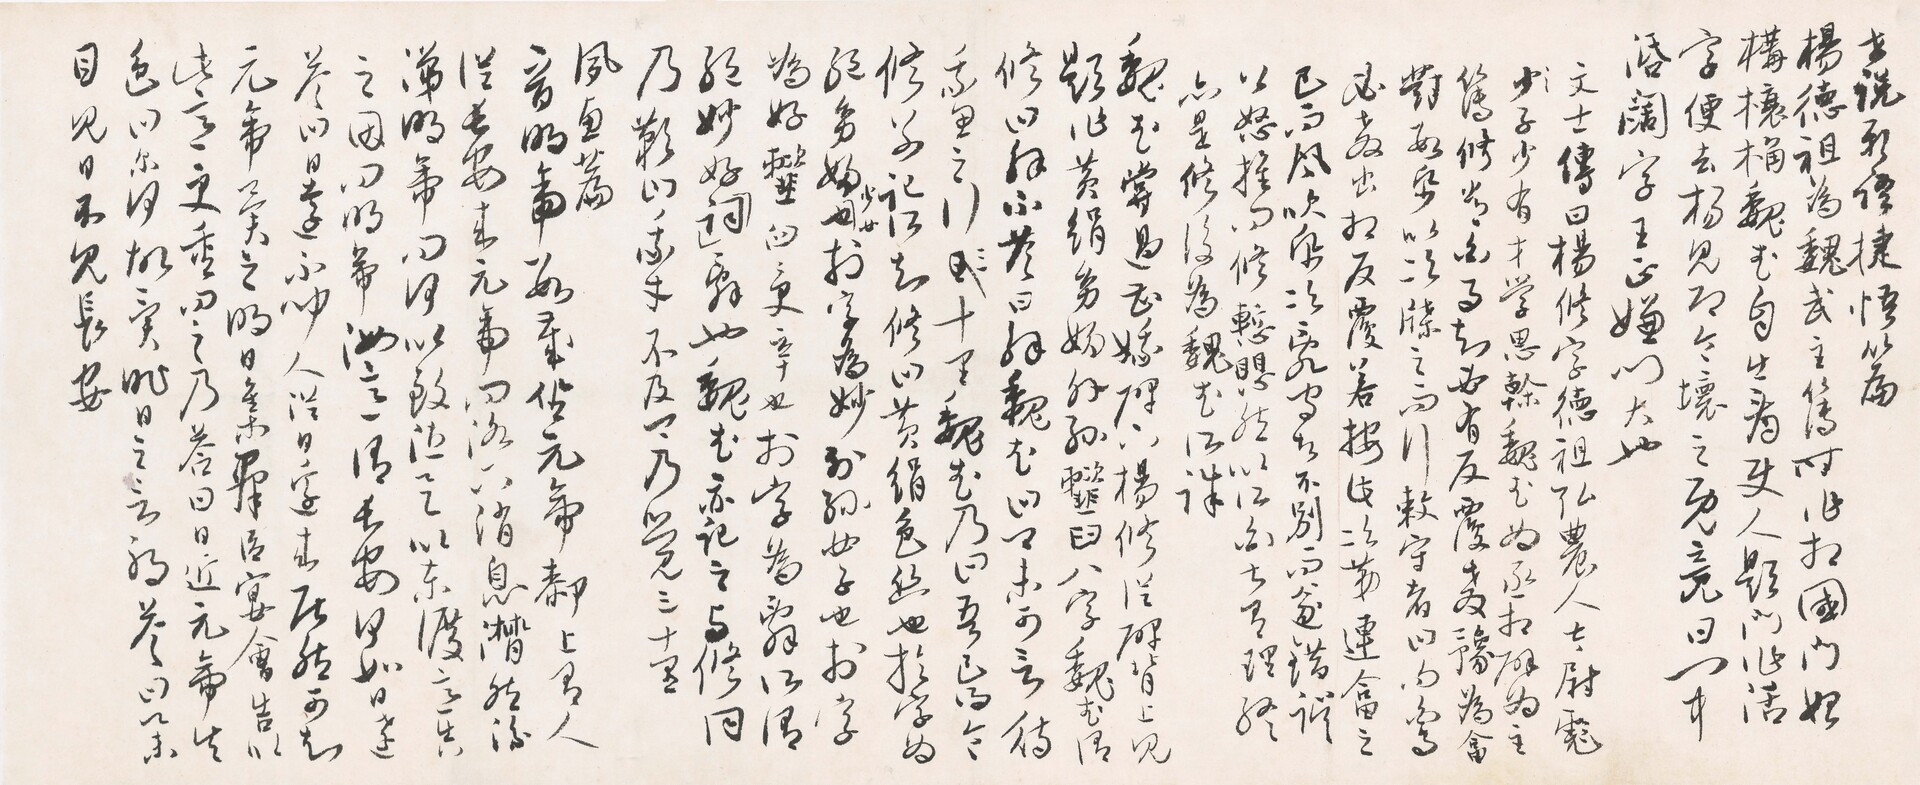 世說新語捷悟篇
楊德祖為魏武主簿時作相國門始
構榱桷魏武自出看使人題門作活
字便去楊見即令壞之既竟曰門中
活闊字王正嫌門大也
文士傳曰楊修字德祖弘農人太尉彪
子少有才學思幹魏武為丞相辟為主
簿修常白事知必有反覆教豫為答
對數紙以次牒之而行敕守者曰向白事
必教出相反覆若按此次第連答之
已而風吹紙次亂守者不別而遂錯誤
公怒推問修慚懼然以所白甚有理終
亦是修後為魏武所誅
魏武嘗過曹娥碑下楊修從碑背上見
題作黃絹幼婦外孫虀臼八字魏武謂
修曰解不答曰解魏武曰卿未可言待
我思之行三十里魏武乃曰吾已得令
修別記所知修曰黃絹色絲也於字為
絕幼婦少女也於字為妙外孫女子也於字
為好虀臼受辛也於字為辭所謂
絕妙好辭也魏武亦記之與修同
乃歎曰我才不及卿乃覺三十里
夙惠篇
晉明帝數歲坐元帝膝上有人
從長安來元帝問洛下消息潸然流
涕明帝問何以致泣具以東渡意告
之因問明帝汝意謂長安何如日遠
答曰日遠不聞人從日邊來居然可知
元帝異之明日集群臣宴會告以
此意更重問之乃答曰日近元帝失
色曰爾何故異昨日之言邪答曰舉
目見日不見長安